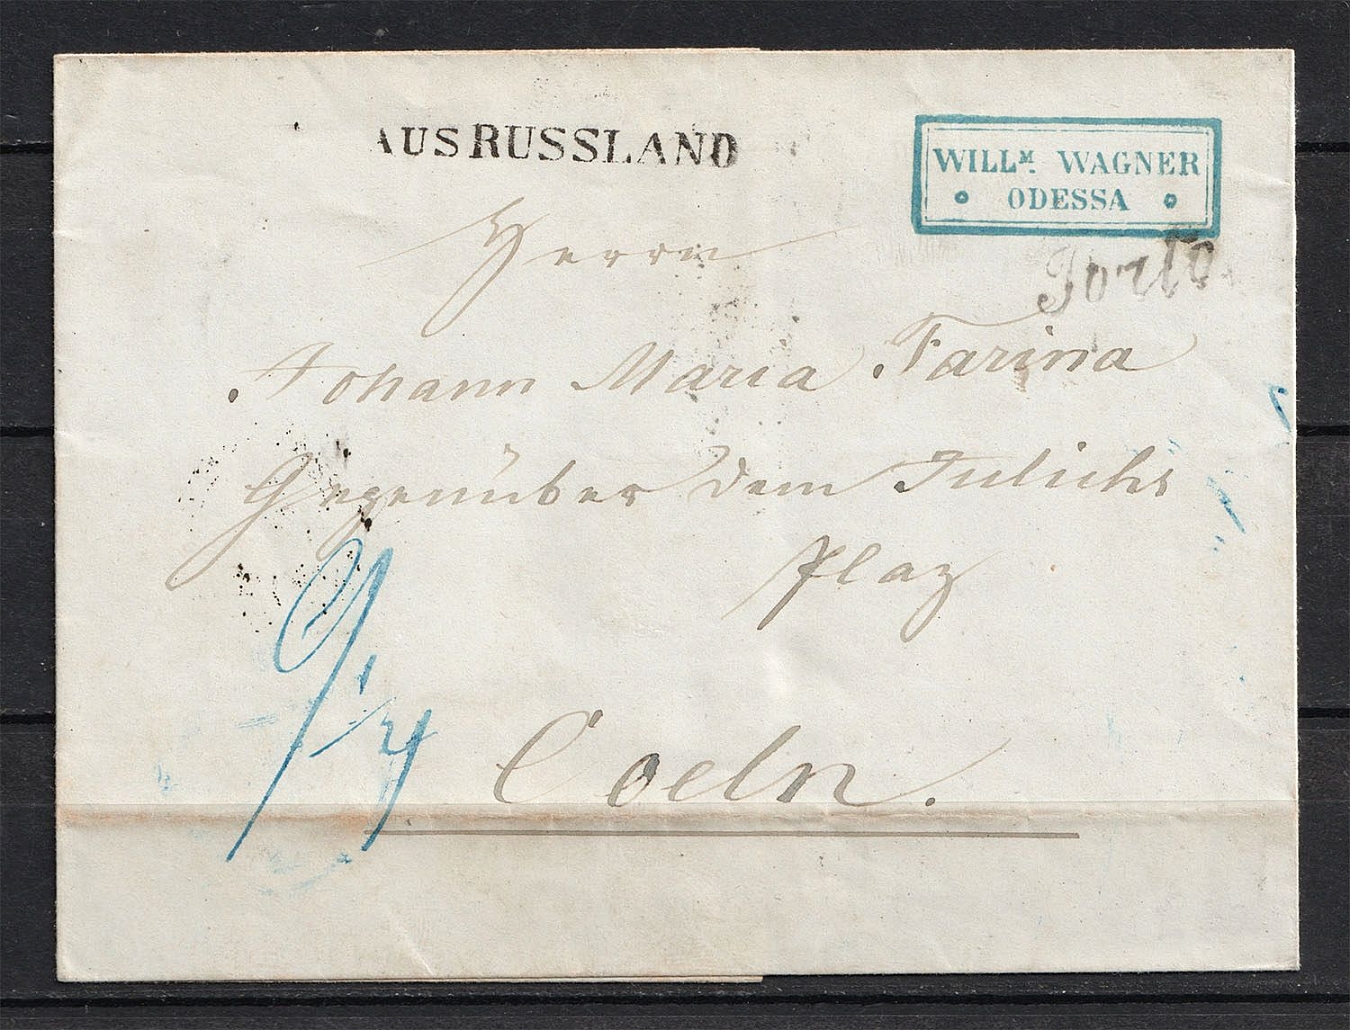 AUS RUSSLAND
WILLM. WAGNER
ODESSA
Porto
Herrn
Johann Maria Farina
Gegenüber dem Julichs
Plaz
Coeln.